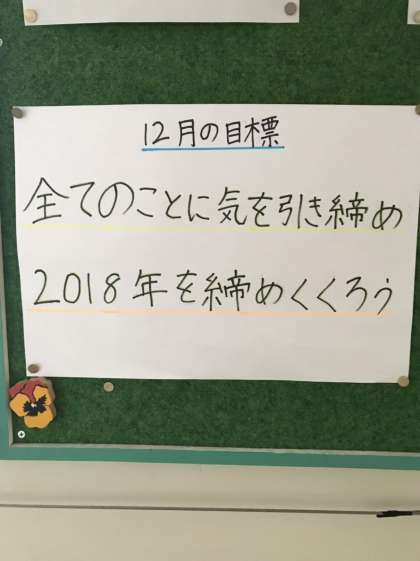 12月の目標
全てのことに気を引き締め
2018年を締めくくろう